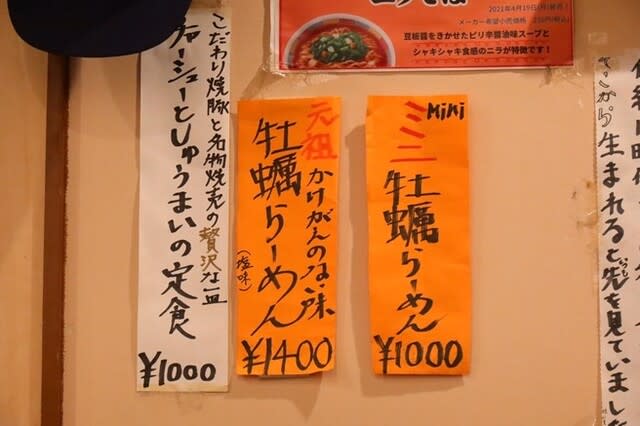 ニラそば
2021年4月19日(月)発売!
メーカー希望小売価格
豆板醤をきかせたピリ辛醤油味スープと
シャキシャキ食感のニラが特徴です!
生まれると
先を見ていました
Mini
ミニ
牡蠣らーめん
¥1000
元祖
かけがえのない味
牡蠣らーめん
(塩味)
¥1400
こだわり焼豚と名物焼売の贅沢な一皿
チャーシューとしゅうまいの定食
¥1000